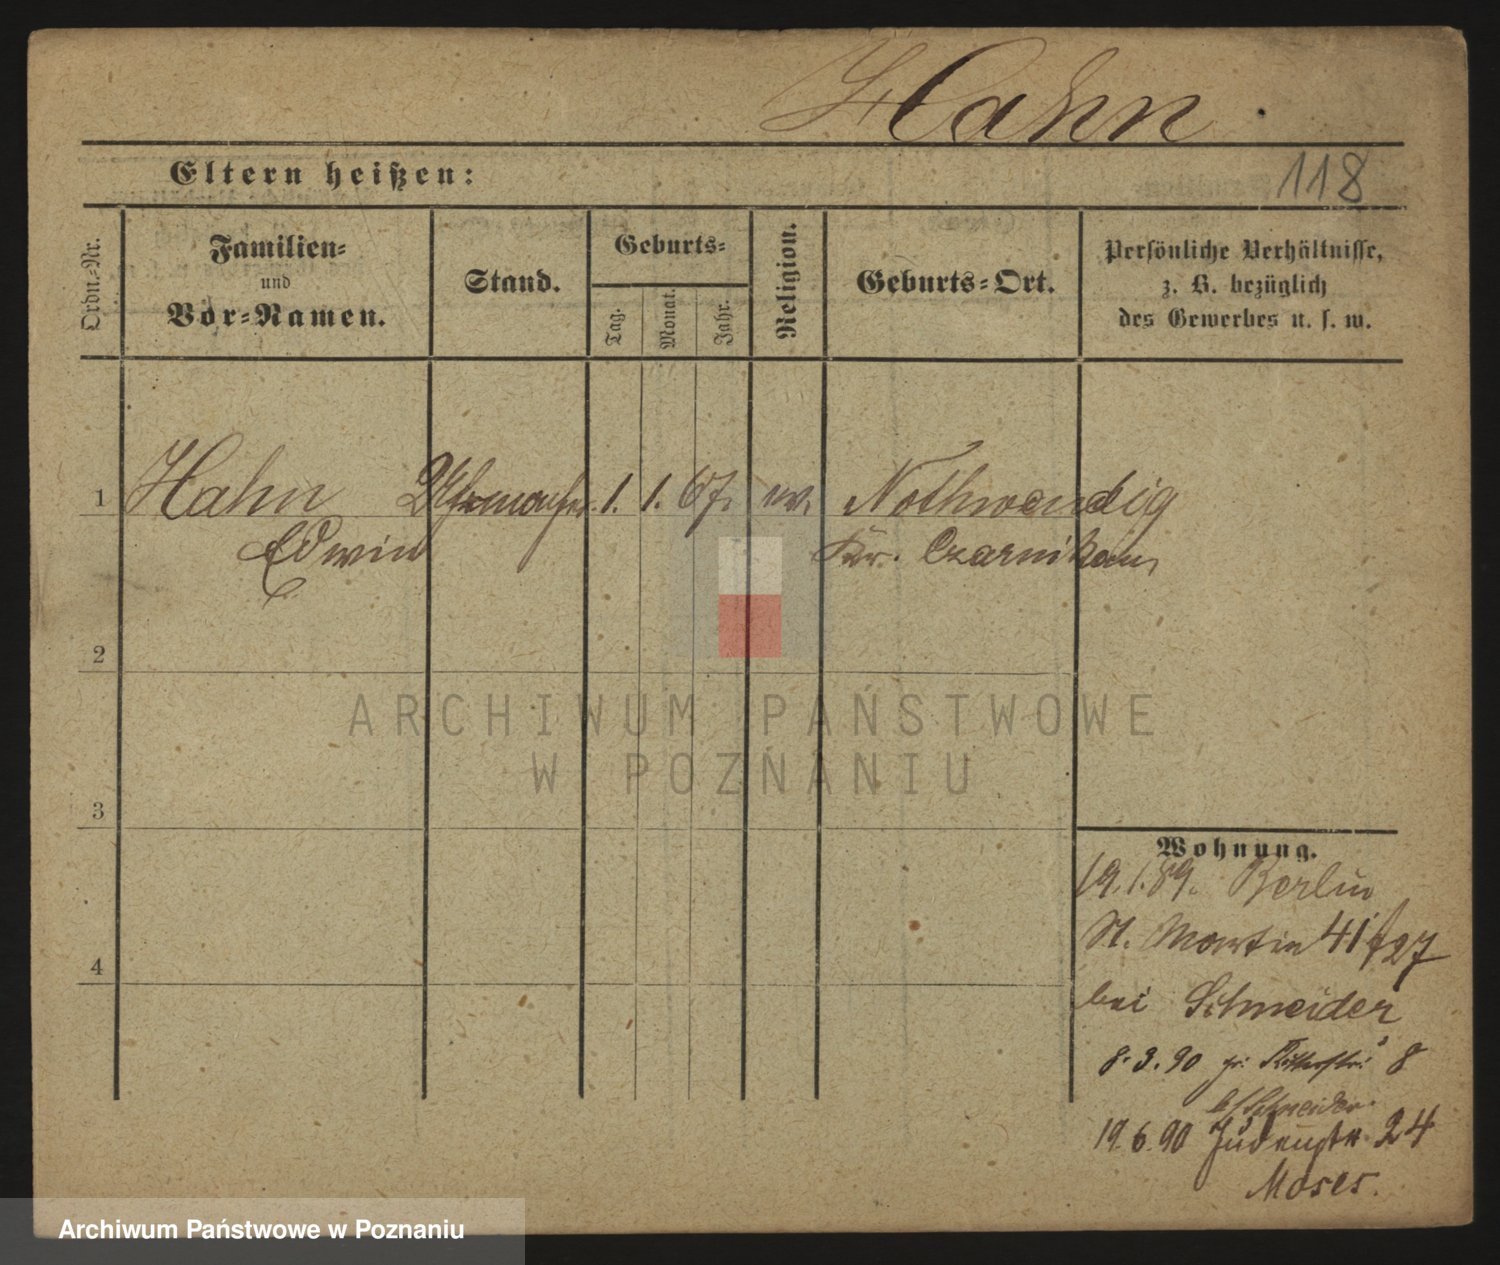 Hahn.
Eltern heißen:
118
Ordn.-Nr.
Familien-
und
Vor-Namen.
Stand.
Geburts-
Tag.
Monat.
Jahr.
Religion.
Geburts-Ort.
Persönliche Verhältnisse,
z. B. bezüglich
des Gewerbes u. s. w.
1 Hahn Uhrmacher. 1. 1. 67. ev. Nothwendig
Edwin Kr. Czarnikau
2
ARCHIWUM PAŃSTWOWE
W POZNANIU
3
Wohnung.
19.1.89. Berlin
St. Martin 41 27
bei Schneider
8.3.90 gr. Ritterstr. 8
b/Schneider.
4
19.6.90 Judenstr. 24
Moses.
Archiwum Państwowe w Poznaniu